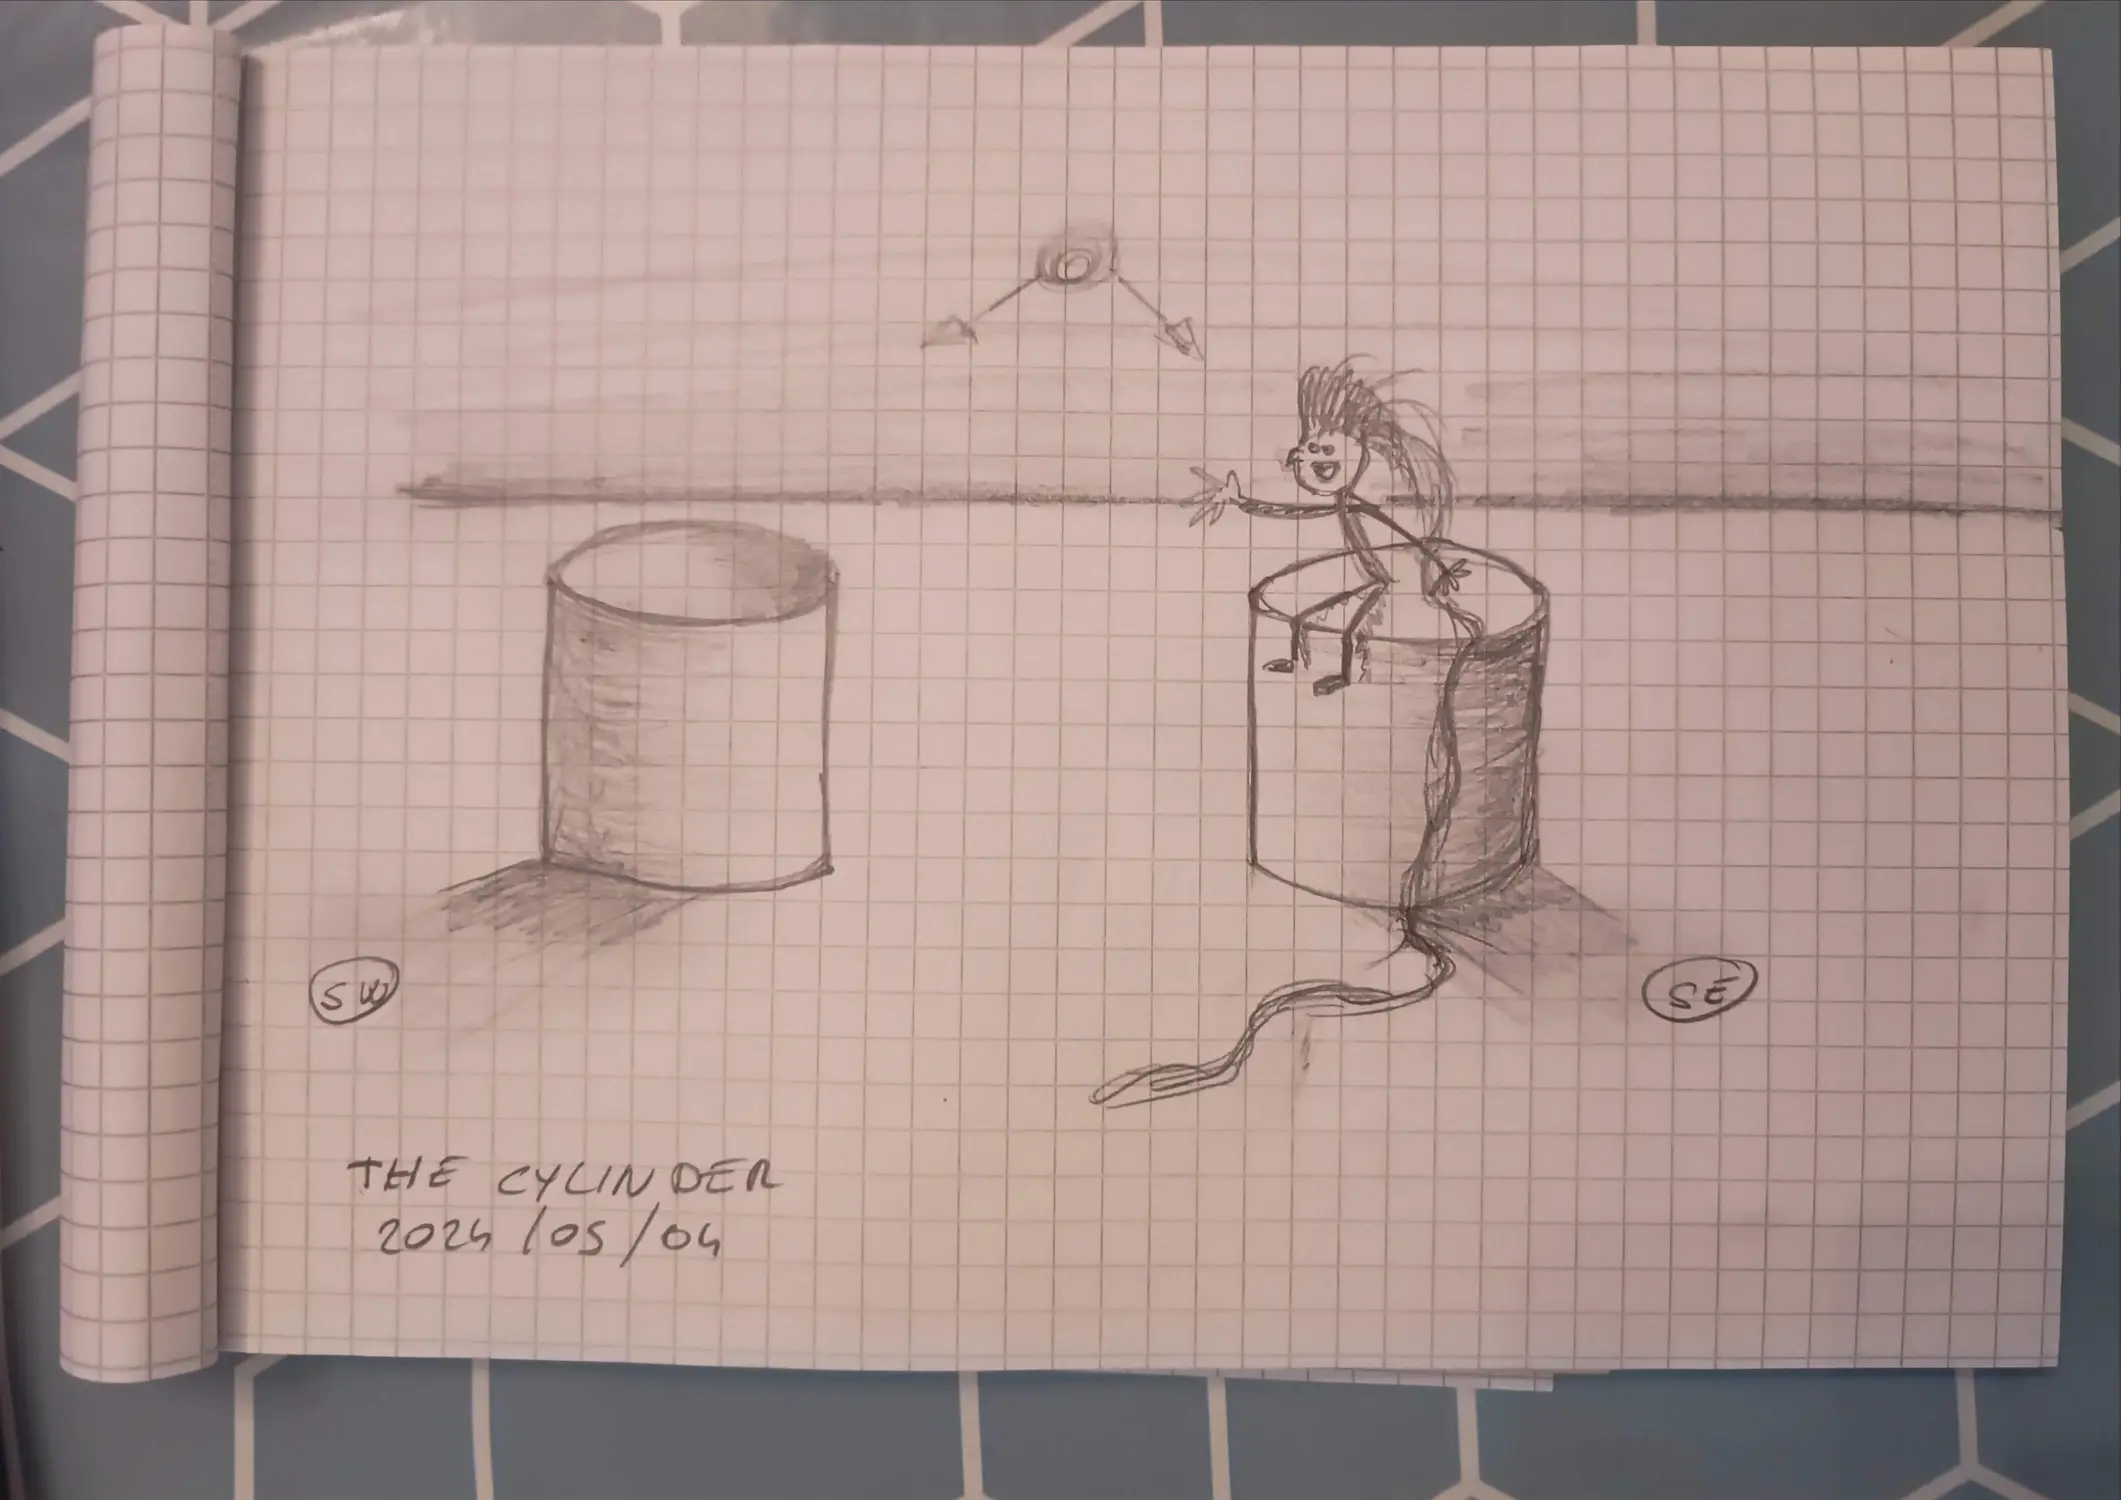 SW
SE
THE CYLINDER
2024/05/04